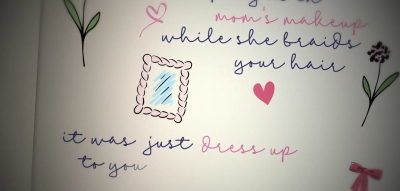 mom's makeup
while she braids
your hair
it was just dress up
to you